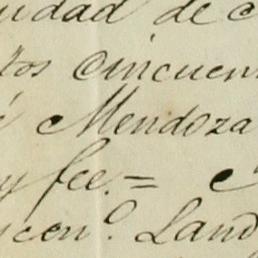 udad de
tos cincuen
Mendoza
y fee. =
cen.º Land